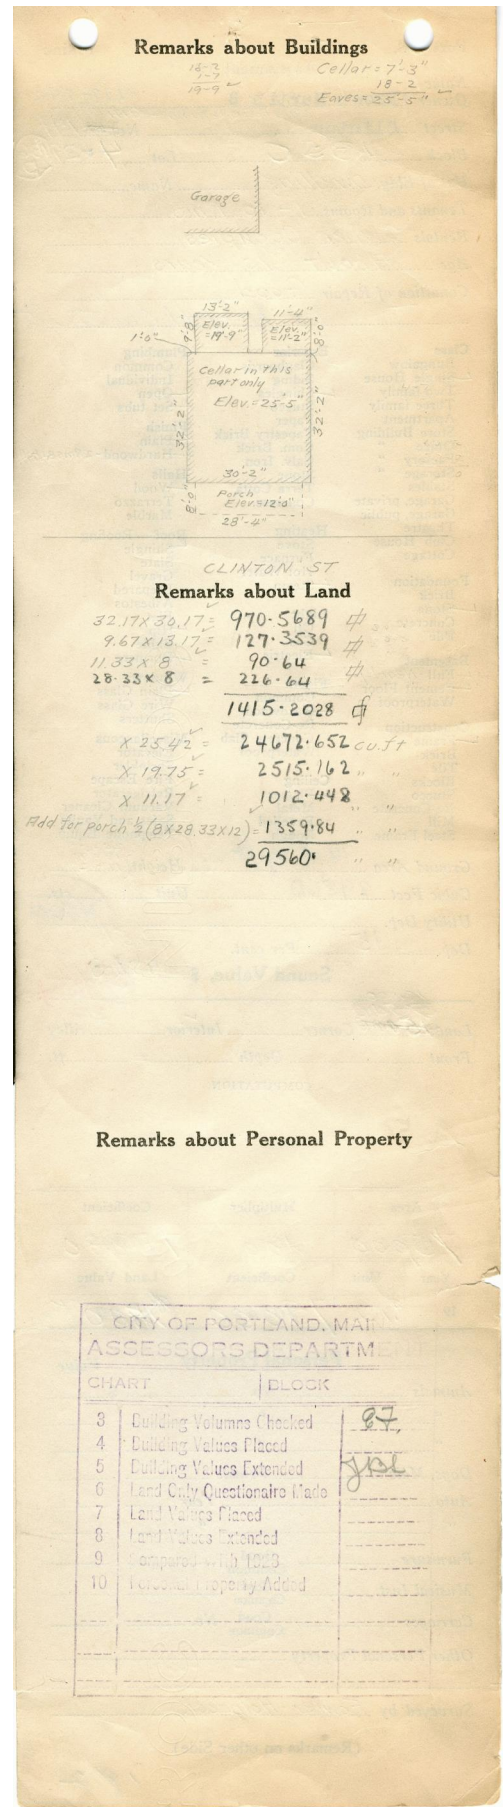 Remarks about Buildings
Cellar = 7'-3"
18-2
19-9 ✓
Eaves = 25'-5" ✓
Garage
13'-2"
11'-4"
9'-8"
Elev. =19'-9"
Elev. =11'-2"
8'-0"
1'-0"
Cellar in this part only
Elev. = 25'-5"
32'-2"
32'-2"
30'-2"
8'-0"
Porch Elev.=12'-0"
28'-4"
CLINTON ST
Remarks about Land
32.17 X 30.17 = 970.5689
9.67 X 13.17 = 127.3539
11.33 X 8 = 90.64
28.33 X 8 = 226.64
1415.2028
X 25.42 = 24672.652 cu.ft
X 19.75 = 2515.162 " "
X 11.17 = 1012.448 " "
Add for porch ½ (8X28.33X12) = 1359.84 " "
29560. " "
Remarks about Personal Property
CITY OF PORTLAND, MAI
ASSESSORS DEPARTM
CHART BLOCK
3 Building Volumns Checked
4 Building Values Placed
5 Building Values Extended
6 Land Only Questionaire Made
7 Land Values Placed
8 Land Values Extended
9 Compared With
10 Personal Property Added
(Remarks on other Side)